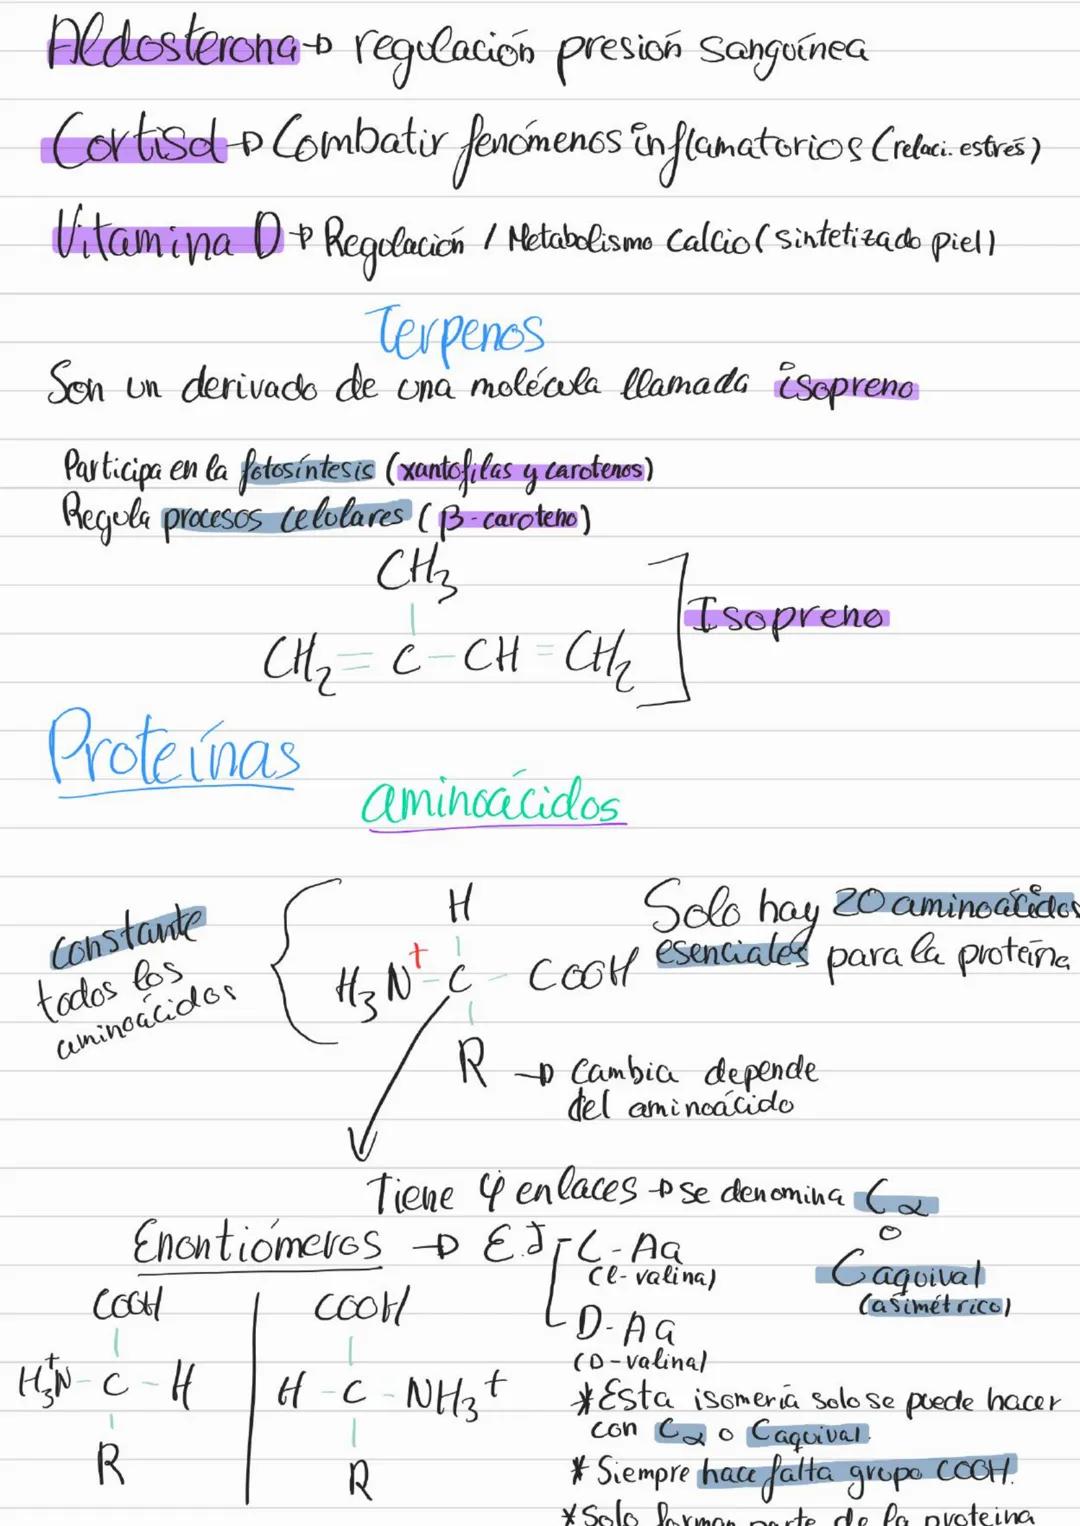 Aldosterona → regulación presión sanguínea
Cortisol → Combatir fenómenos inflamatorios (relaci. estrés)
Vitamina D → Regulación / Metabolismo Calcio (sintetizado piel)
Terpenos
Son un derivado de una molécula llamada isopreno
Participa en la fotosíntesis (xantofilas y carotenos)
Regula procesos celulares (β-caroteno)
CH3
CH2 = C - CH = CH2
Isopreno
Proteínas
aminoácidos
constante
todos los
aminoácidos
H
H3N+ - C - COOH
R → Cambia depende
del aminoácido
Solo hay 20 aminoácidos
esenciales para la proteína
Tiene 4 enlaces → se denomina Cα
o
Caquival
(asimétrico)
Enantiómeros → EJ
L-Aa
(l-valina)
D-Aa
(D-valina)
COOH
H3+N - C - H
R
COOH
H - C - NH3+
R
*Esta isomería solo se puede hacer
con Cα o Caquival.
* Siempre hace falta grupo COOH.
*Solo forman parte de la proteina